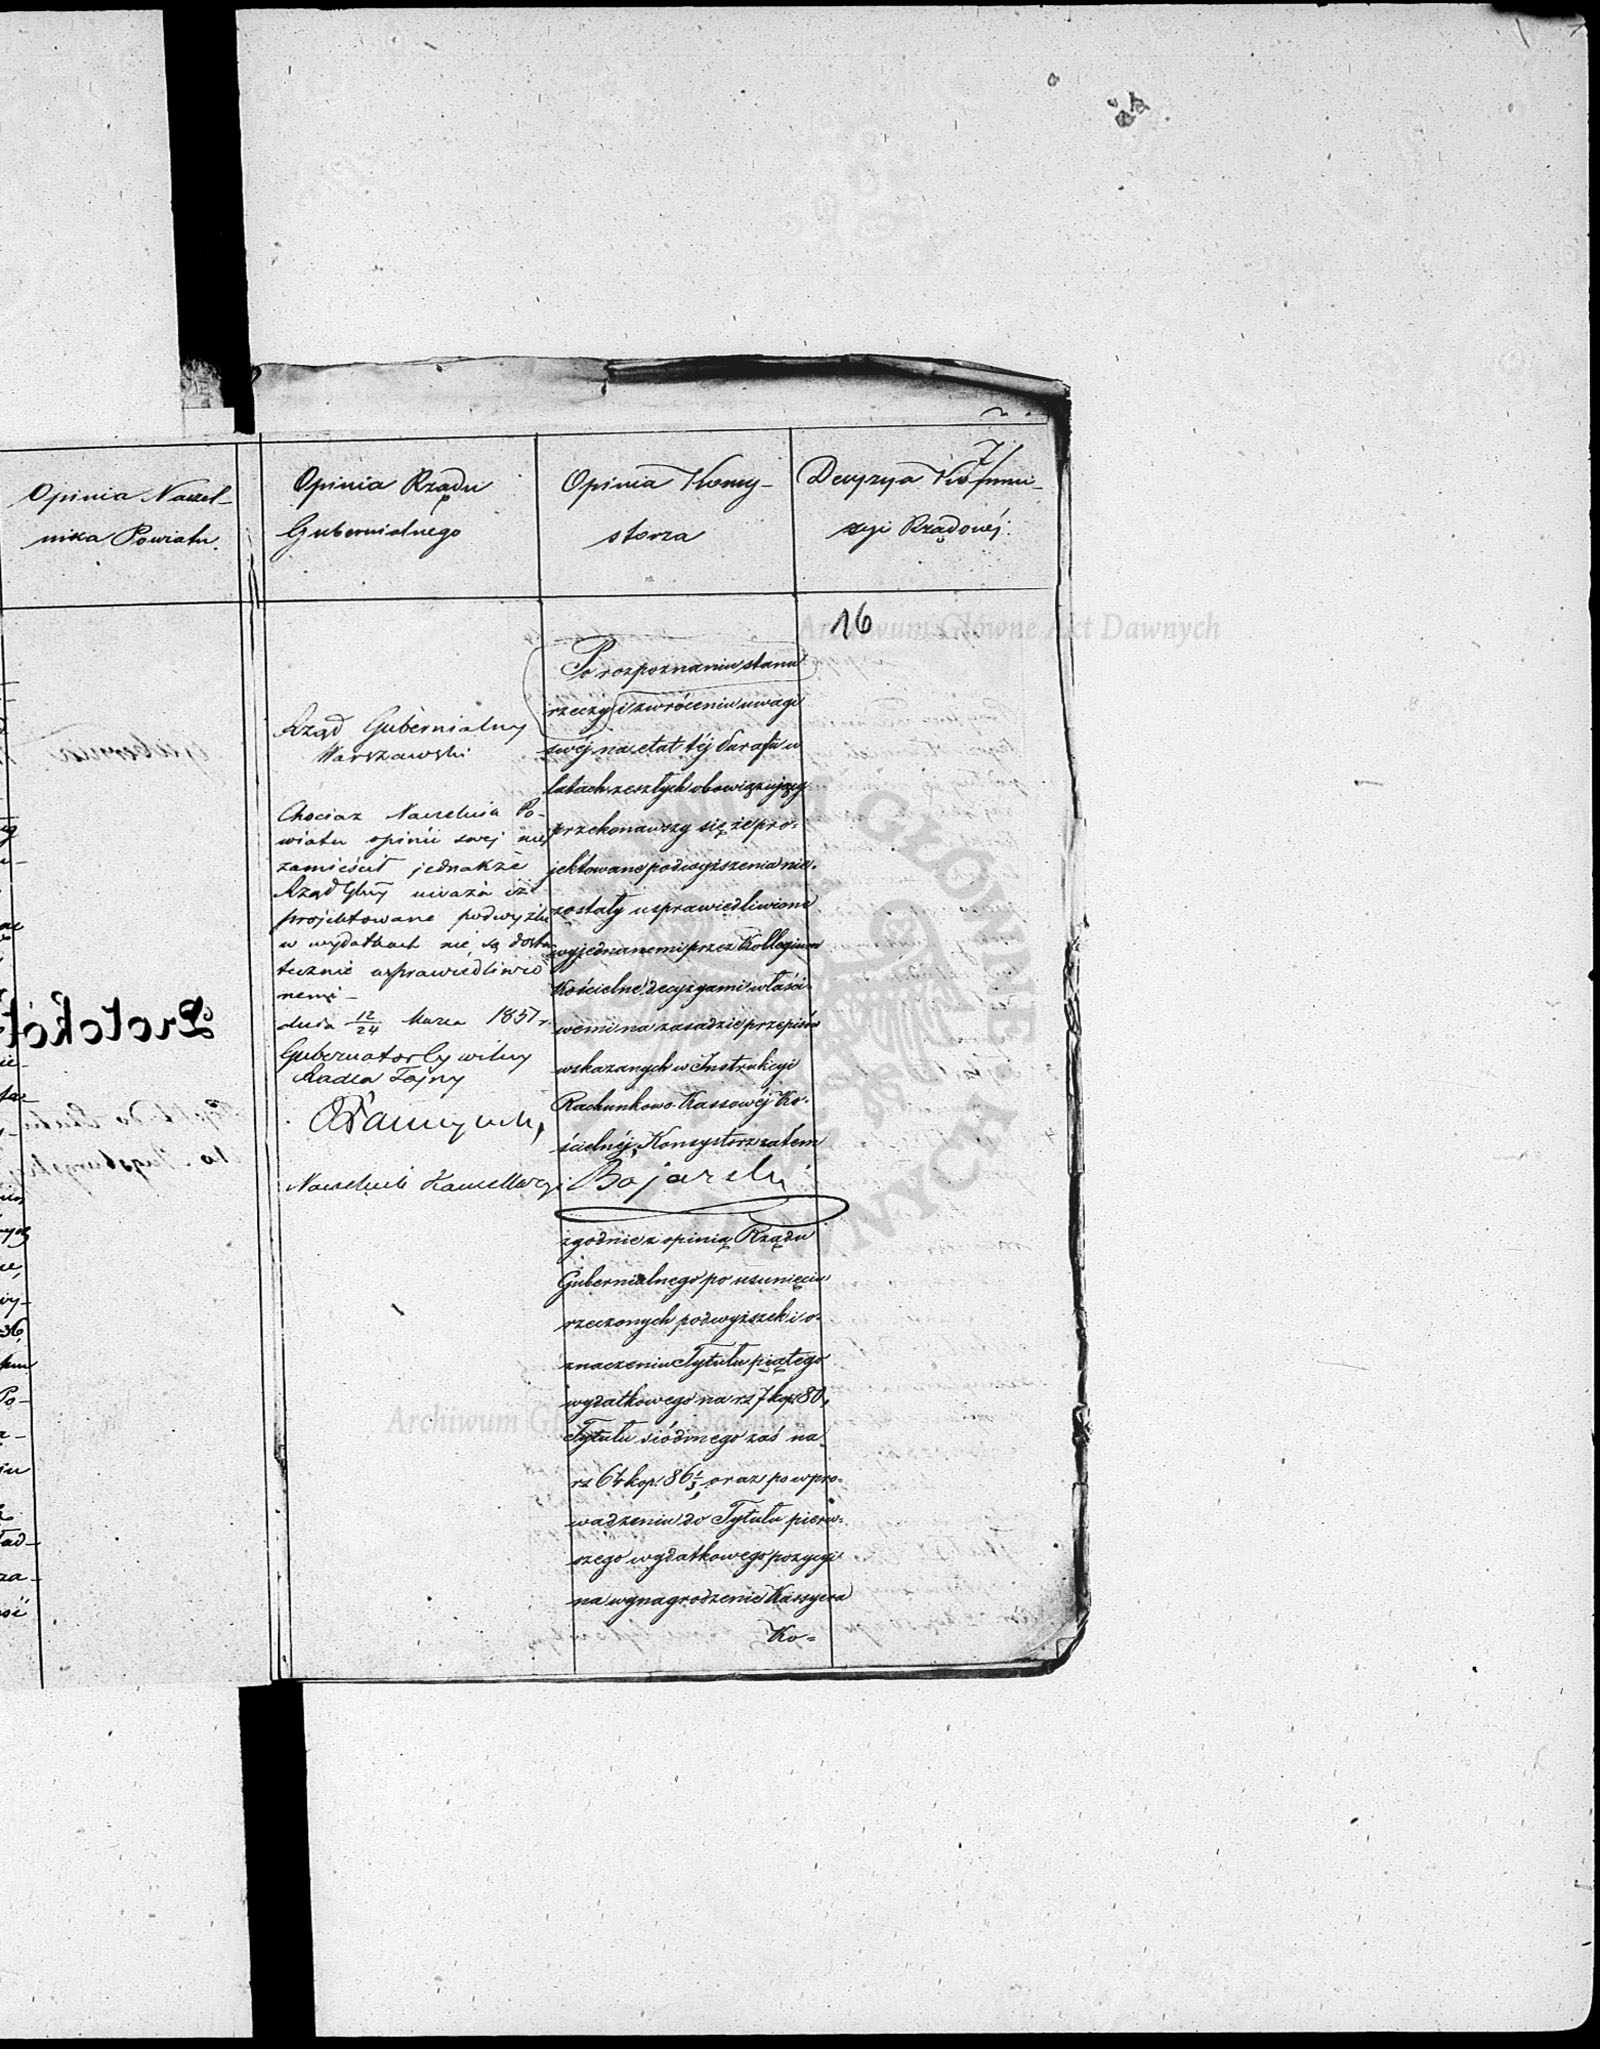 7/
Opinia Naczel-
nika Powiatu.
Opinia Rządu
Gubernialnego
Opinia Konsy-
storza
Decyzya Kommi-
syi Rządowéj.
16
Rząd Gubernialny
Warszawski
Chociaż Naczelnik Po-
wiatu opinii swej nie
zamieścił jednakże
Rząd Glny uważa że
projektowane podwyżki
w wydatkach nie są dosta
tecznie usprawiedliwio
nemi -
dnia 12/24 Marca 1857 r.
Gubernator Cywilny
Radca Tajny
Naczelnik Kancellaryi Bojarski
Po rozpoznaniu stanu
rzeczy i zwróceniu uwagi
swéj na etat téj Parafii w
latach zeszłych obowiązujący
przekonawszy się że pro-
jektowane podwyższenia nie
zostały usprawiedliwione
wyjednanemi przez Kollegium
Kościelne decyzyami właści-
wemi na zasadzie przepisów
wskazanych w Instrukcyi
Rachunkowo-Kassowéj Ko-
ścielnéj, Konsystorz zatem
zgodnie z opinią Rządu
Gubernialnego po usunięciu
rzeczonych podwyższek i o-
znaczeniu Tytułu piątego
wydatkowego na rs 7 kop. 80,
Tytułu siódmego zaś na
rs 64 kop. 86 1/2, oraz po wpro-
wadzeniu do Tytułu pierw-
szego wydatkowego pozycyi
na wynagrodzenie Kassyera
Ko-
Protokół
Archiwum Główne Akt Dawnych
Archiwum Główne Akt Dawnych